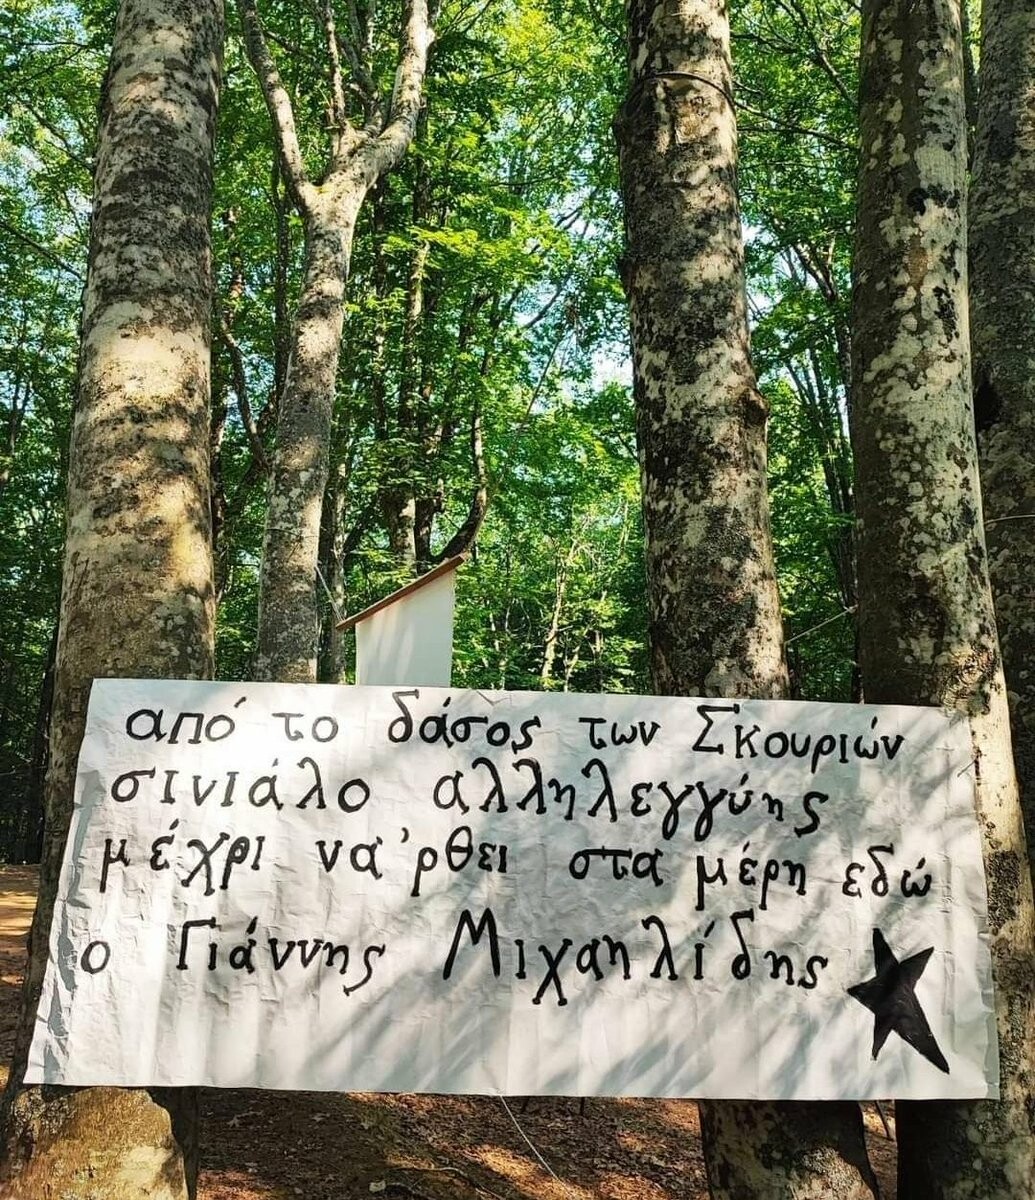 από το δάσος των Σκουριών
σινιάλο αλληλεγγύης
μέχρι να 'ρθει στα μέρη εδώ
ο Γιάννης Μιχαηλίδης